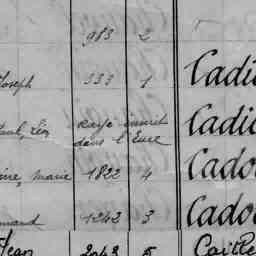 983 2
Joseph 333 1 Cadi
Paul, Léon Rayé inscrit dans l'Eure Cadio
ine, Marie 1822 4 Cado
mand 1242 3 Cado
Jean 2043 5 Caille